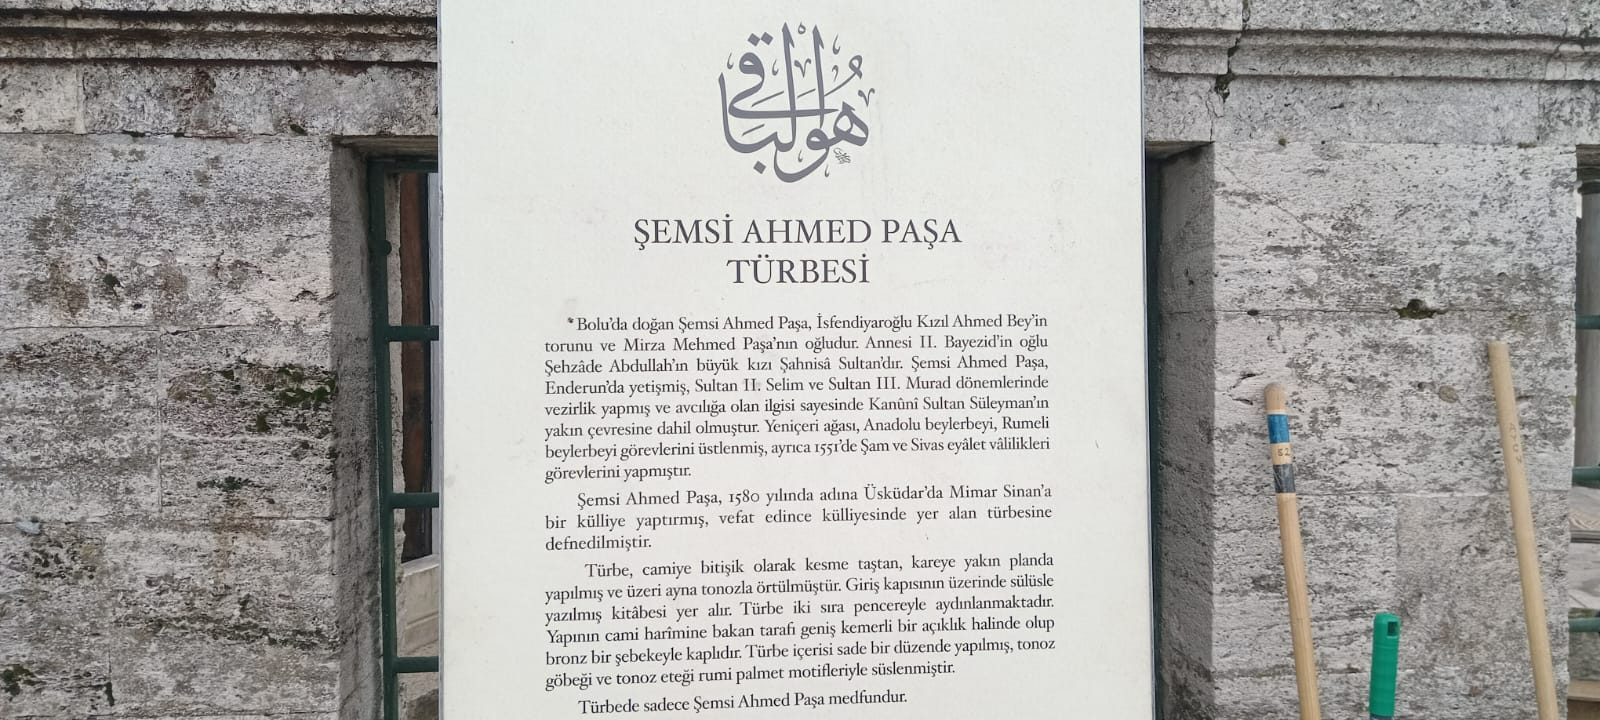 هو الباقي
ŞEMSİ AHMED PAŞA
TÜRBESİ
Bolu'da doğan Şemsi Ahmed Paşa, İsfendiyaroğlu Kızıl Ahmed Bey'in
torunu ve Mirza Mehmed Paşa'nın oğludur. Annesi II. Bayezid'in oğlu
Şehzâde Abdullah'ın büyük kızı Şahnisâ Sultan'dır. Şemsi Ahmed Paşa,
Enderun'da yetişmiş, Sultan II. Selim ve Sultan III. Murad dönemlerinde
vezirlik yapmış ve avcılığa olan ilgisi sayesinde Kanûnî Sultan Süleyman'ın
yakın çevresine dahil olmuştur. Yeniçeri ağası, Anadolu beylerbeyi, Rumeli
beylerbeyi görevlerini üstlenmiş, ayrıca 1551'de Şam ve Sivas eyâlet vâlilikleri
görevlerini yapmıştır.
Şemsi Ahmed Paşa, 1580 yılında adına Üsküdar'da Mimar Sinan'a
bir külliye yaptırmış, vefat edince külliyesinde yer alan türbesine
defnedilmiştir.
Türbe, camiye bitişik olarak kesme taştan, kareye yakın planda
yapılmış ve üzeri ayna tonozla örtülmüştür. Giriş kapısının üzerinde sülüsle
yazılmış kitâbesi yer alır. Türbe iki sıra pencereyle aydınlanmaktadır.
Yapının cami harîmine bakan tarafı geniş kemerli bir açıklık halinde olup
bronz bir şebekeyle kaplıdır. Türbe içerisi sade bir düzende yapılmış, tonoz
göbeği ve tonoz eteği rumi palmet motifleriyle süslenmiştir.
Türbede sadece Şemsi Ahmed Paşa medfundur.
52